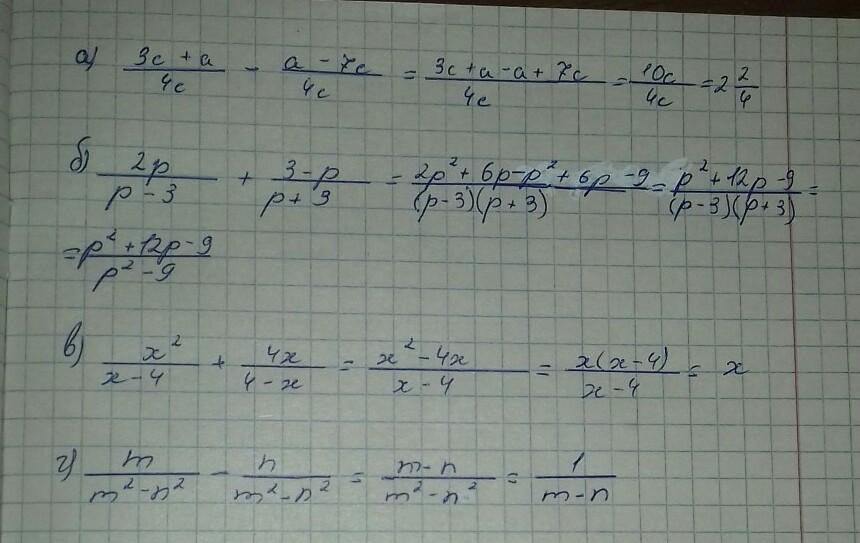 а) (3c + a)/(4c) - (a - 7c)/(4c) = (3c + a - a + 7c)/(4c) = 10c/4c = 2 2/4
б) 2p/(p - 3) + (3 - p)/(p + 3) = (2p² + 6p - p² + 6p - 9)/((p - 3)(p + 3)) = (p² + 12p - 9)/((p - 3)(p + 3)) =
= (p² + 12p - 9)/(p² - 9)
в) x²/(x - 4) + 4x/(4 - x) = (x² - 4x)/(x - 4) = x(x - 4)/(x - 4) = x
г) m/(m² - n²) - n/(m² - n²) = (m - n)/(m² - n²) = 1/(m - n)